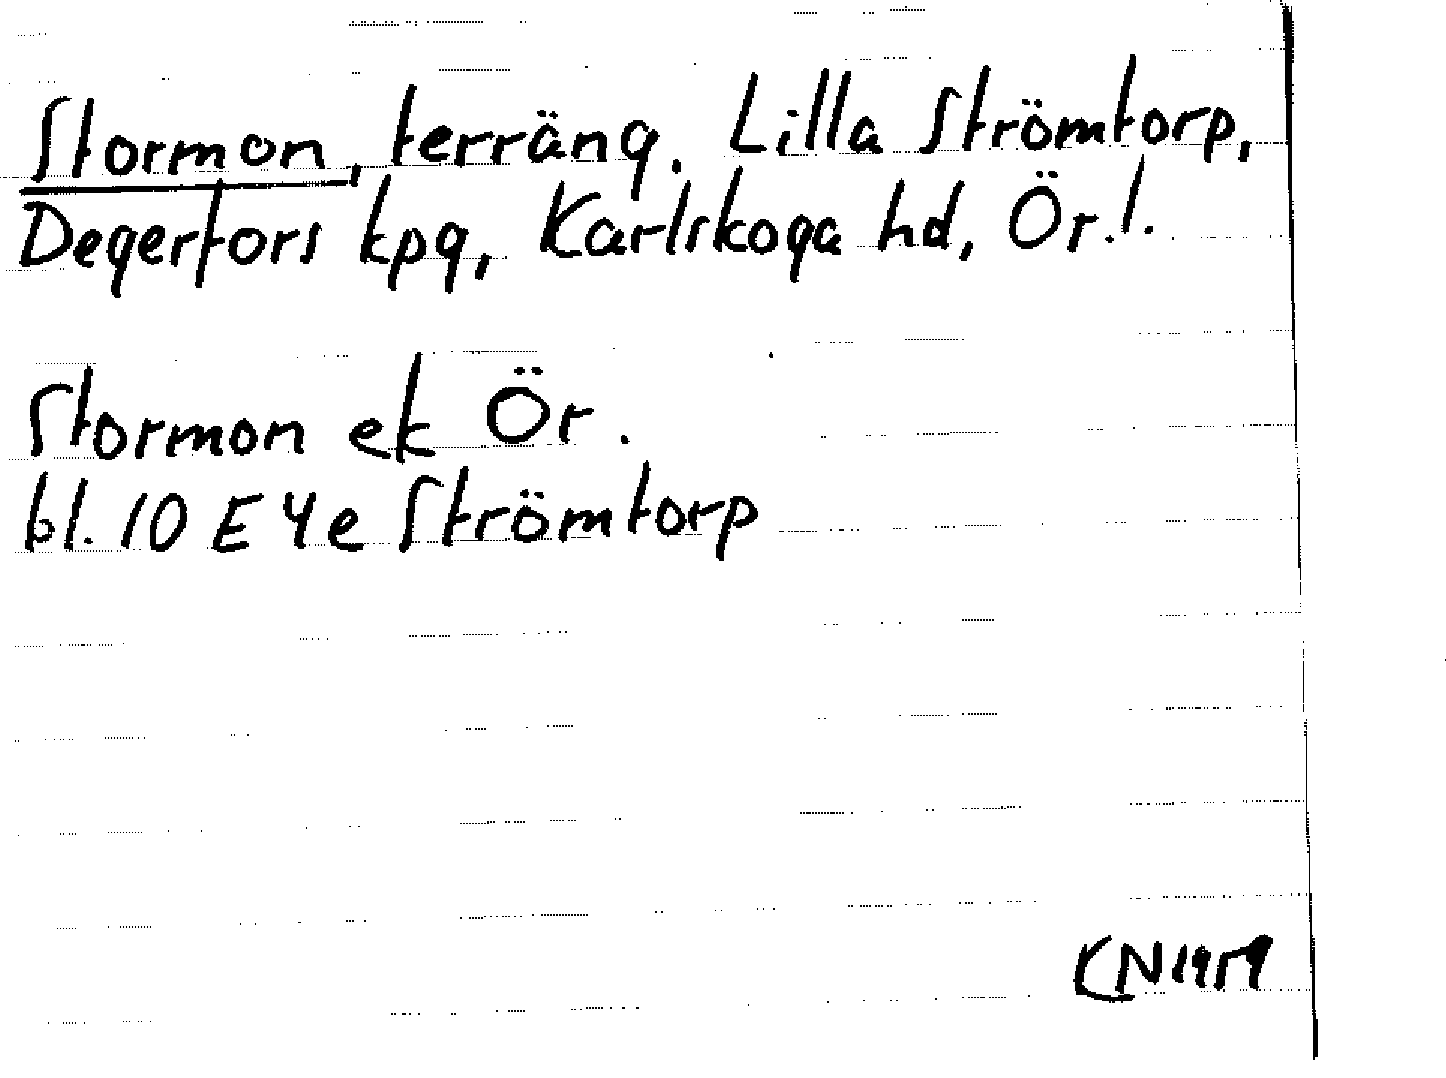 Stormon, terräng. Lilla Strömtorp,
Degerfors kpg, Karlskoga hd, Ör.l.
Stormon ek Ör.
bl. 10 E 4e Strömtorp
CN 1959